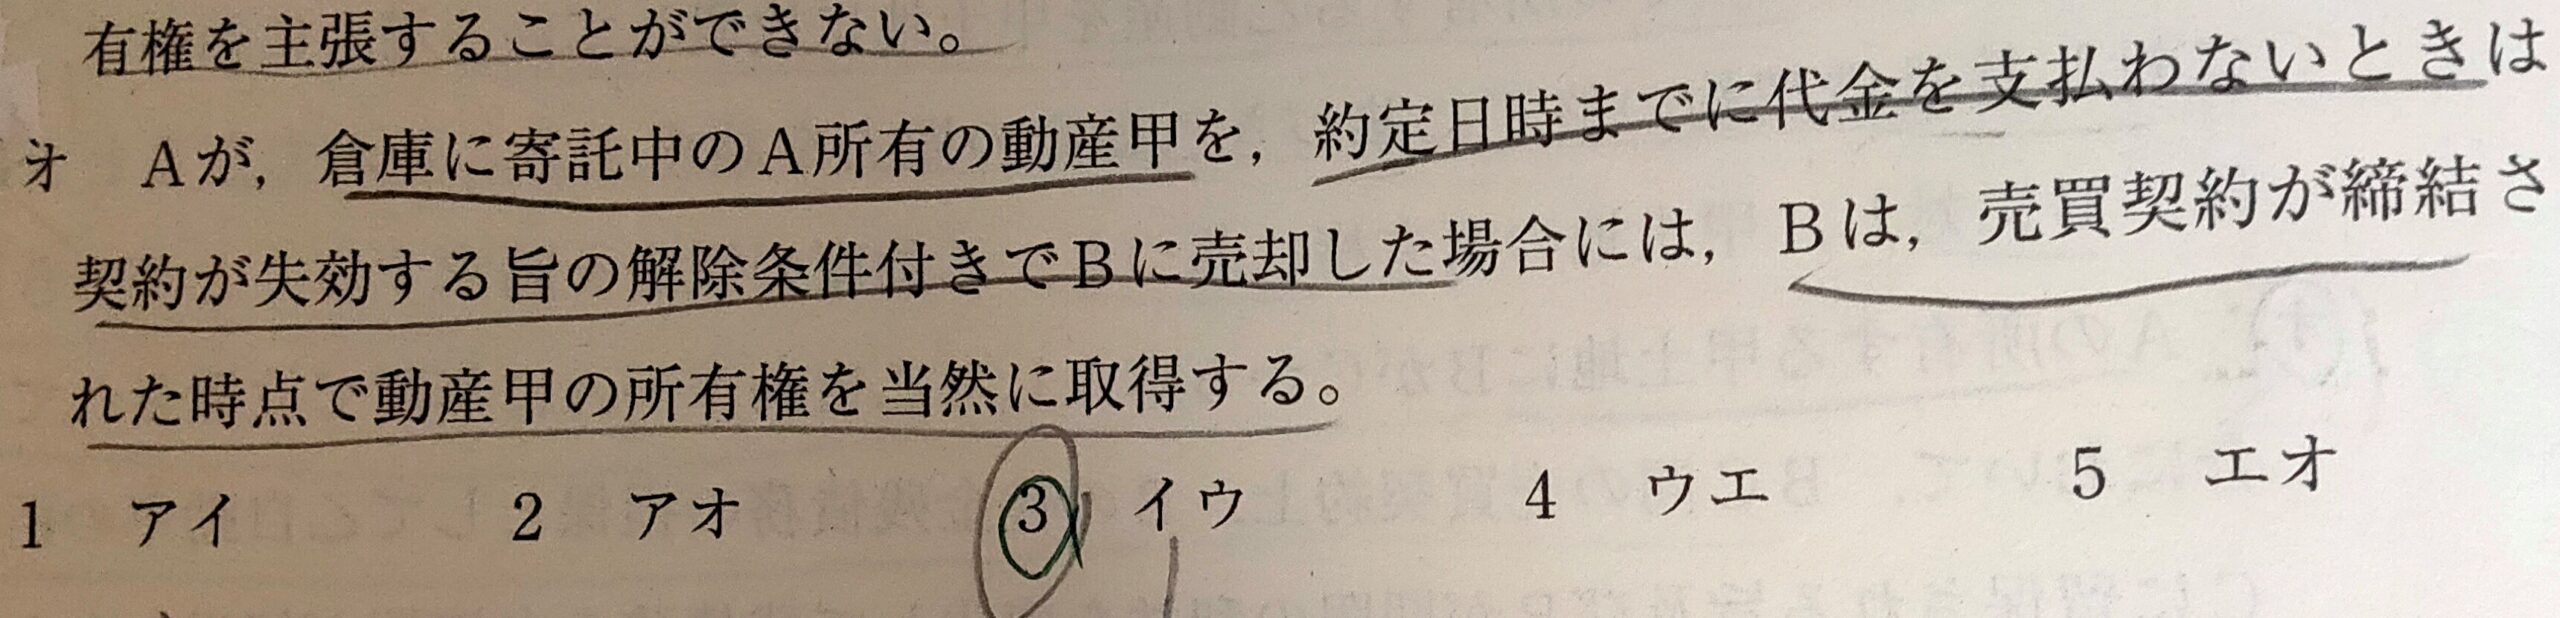 有権を主張することができない。
オ　Aが，倉庫に寄託中のA所有の動産甲を，約定日時までに代金を支払わないときは
契約が失効する旨の解除条件付きでBに売却した場合には，Bは，売買契約が締結さ
れた時点で動産甲の所有権を当然に取得する。
1　アイ　2　アオ　3　イウ　4　ウエ　5　エオ